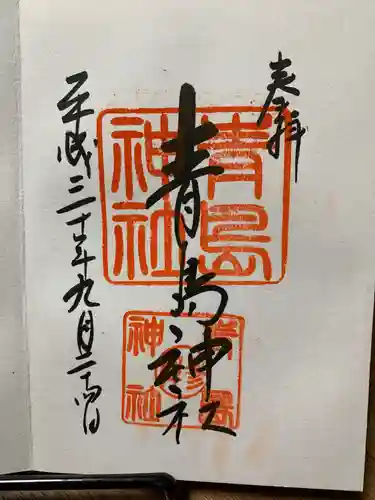 奉拝
青島神社
平成三十年九月二十四日
青島
神社